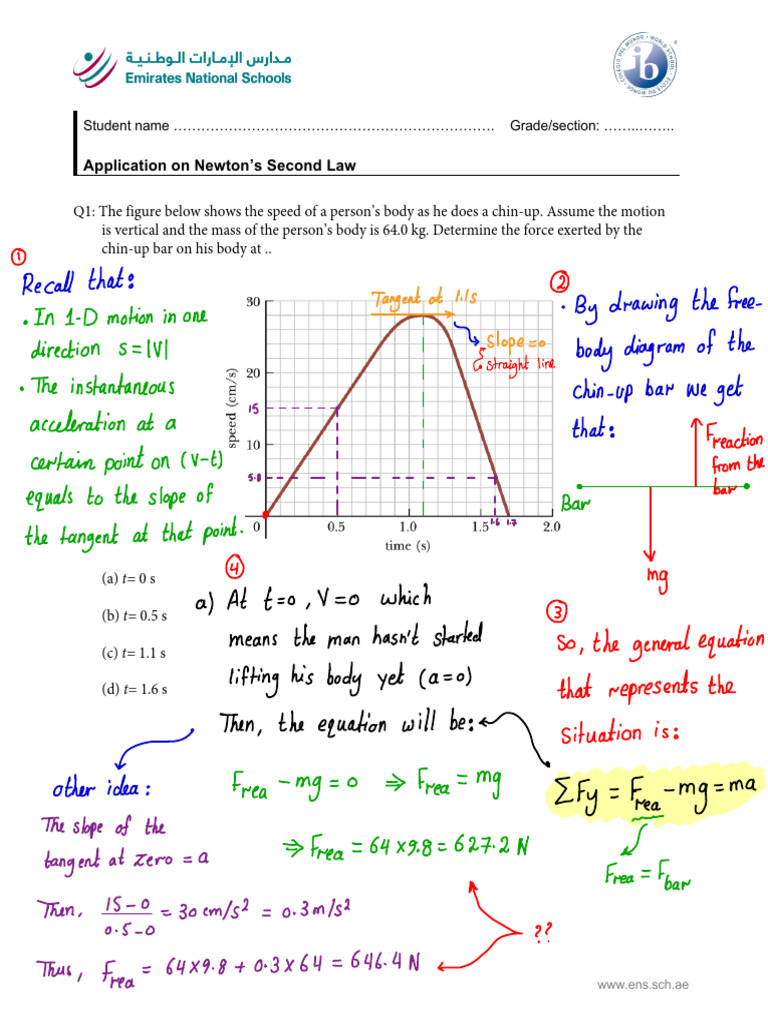 مدارس الإمارات الوطنية
Emirates National Schools
Student name ……………………………………………………………. Grade/section: ……..……..
Application on Newton's Second Law
Q1: The figure below shows the speed of a person's body as he does a chin-up. Assume the motion
is vertical and the mass of the person's body is 64.0 kg. Determine the force exerted by the
chin-up bar on his body at ..
1
Recall that:
• In 1-D motion in one
direction s=|V|
• The instantaneous
acceleration at a
certain point on (v-t)
equals to the slope of
the tangent at that point.
Tangent at 1.1s
slope=0
straight line
speed (cm/s)
30
20
15
10
5.0
0
0.5
1.0
1.5
1.6
1.7
2.0
time (s)
2
• By drawing the free-
body diagram of the
chin-up bar we get
that:
Freaction
from the
bar
Bar
mg
(a) t= 0 s
(b) t= 0.5 s
(c) t= 1.1 s
(d) t= 1.6 s
3
So, the general equation
that represents the
situation is:
ΣFy = Frea - mg = ma
Frea = Fbar
4
a) At t=0, V=0 which
means the man hasn't started
lifting his body yet (a=0)
Then, the equation will be:
Frea - mg = 0 ⇒ Frea = mg
⇒ Frea = 64×9.8 = 627.2 N
other idea:
The slope of the
tangent at zero = a
Then, 15-0/0.5-0 = 30 cm/s² = 0.3 m/s²
Thus, Frea = 64×9.8 + 0.3×64 = 646.4 N
??
www.ens.sch.ae